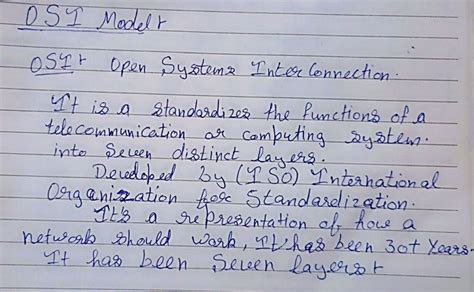 OSI Model :-
OSI :- Open Systems Inter Connection.
It is a standardizes the functions of a
telecommunication or computing system.
into Seven distinct layers.
Developed by (ISO) International
Organization for Standardization.
It's a representation of how a
network should work, It has been 30+ Years.
It has been Seven layers :-